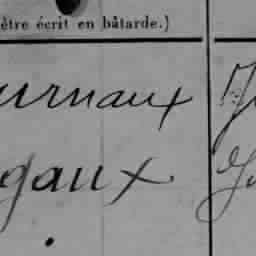 être écrit en bâtarde.)
urnaux
gaux